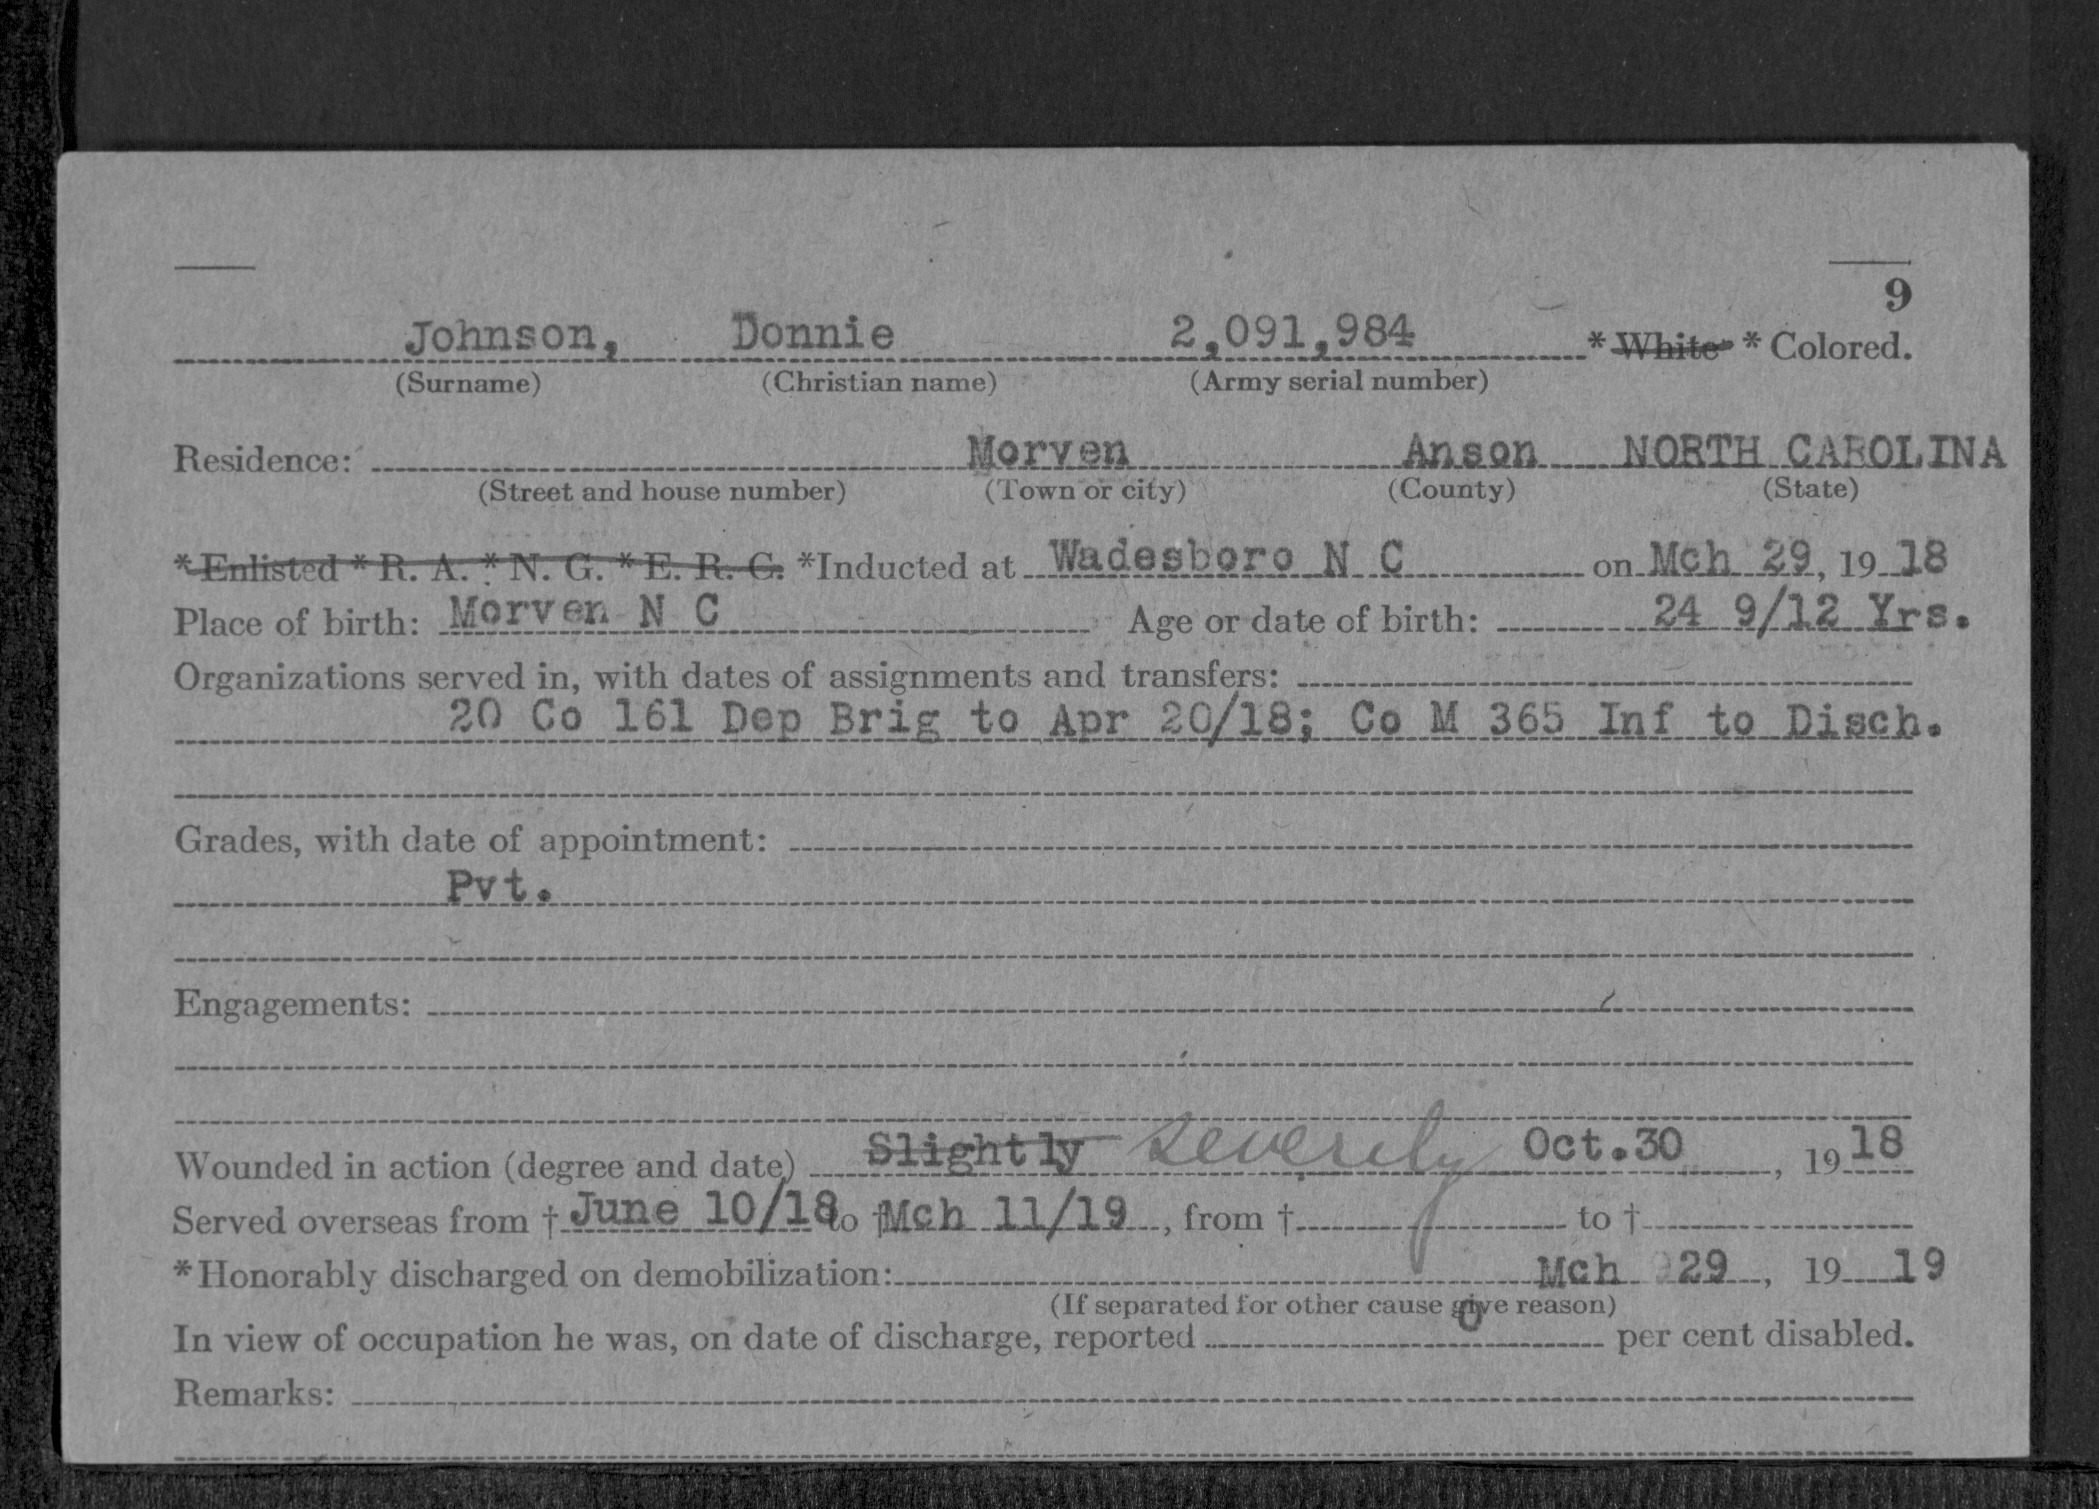 9
Johnson, Donnie 2,091,984 * White * Colored.
(Surname) (Christian name) (Army serial number)
Residence: Morven Anson NORTH CAROLINA
(Street and house number) (Town or city) (County) (State)
* Enlisted * R. A. * N. G. * E. R. C. *Inducted at Wadesboro N C on Mch 29, 19 18
Place of birth: Morven N C Age or date of birth: 24 9/12 Yrs.
Organizations served in, with dates of assignments and transfers:
20 Co 161 Dep Brig to Apr 20/18; Co M 365 Inf to Disch.
Grades, with date of appointment:
Pvt.
Engagements:
Wounded in action (degree and date) Slightly severely Oct.30, 19 18
Served overseas from † June 10/18 to † Mch 11/19, from † to †
*Honorably discharged on demobilization: Mch 29, 19 19
(If separated for other cause give reason)
In view of occupation he was, on date of discharge, reported 0 per cent disabled.
Remarks: